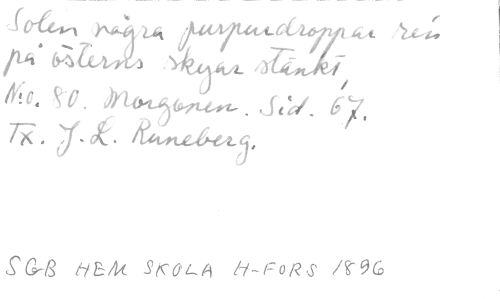 Solen några purpurdroppar ren
på österns skyar stänkt,
N:o. 80. Morgonen. Sid. 67.
Tx. J. L. Runeberg.
SGB HEM SKOLA H-FORS 1896